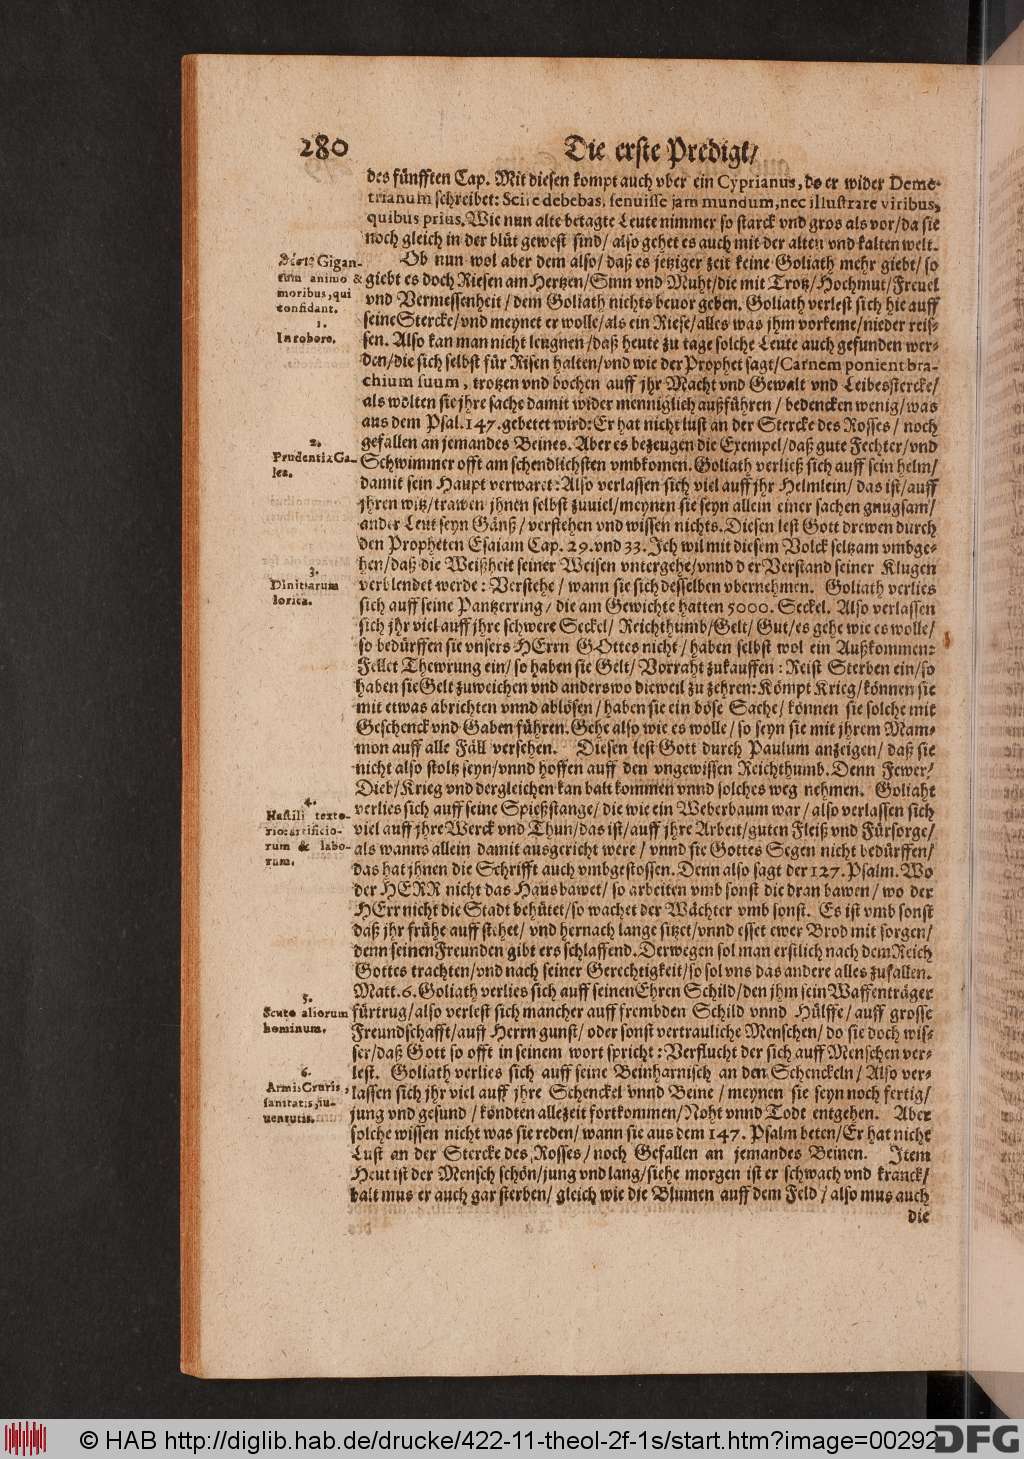 280
Die erste Predigt/
des fünfften Cap. Mit diesen kompt auch vber ein Cyprianus, do er wider Deme-
trianum schreibet: Scire debebas, senuisse jam mundum, nec illustrare viribus,
quibus prius. Wie nun alte betagte Leute nimmer so starck vnd gros als vor/ da sie
noch gleich in der blüt gewest sind/ also gehet es auch mit der alten vnd kalten welt.
Ob nun wol aber dem also/ daß es jetziger zeit keine Goliath mehr giebt/ so
giebt es doch Riesen am Hertzen/ Sinn vnd Muht/ die mit Trotz/ Hochmut/ Freuel
vnd Vermessenheit/ dem Goliath nichts beuor geben. Goliath verlest sich hie auff
seine Stercke/ vnd meynet er wolle/ als ein Riese/ alles was jhm vorkeme/ nieder reis-
sen. Also kan man nicht leugnen/ daß heute zu tage solche Leute auch gefunden wer-
den/ die sich selbst für Risen halten/ vnd wie der Prophet sagt/ Carnem ponient bra-
chium suum, trotzen vnd bochen auff jhr Macht vnd Gewalt vnd Leibesstercke/
als wolten sie jhre sache damit wider menniglich außführen/ bedencken wenig/ was
aus dem Psal. 147. gebetet wird: Er hat nicht lust an der Stercke des Rosses/ noch
gefallen an jemandes Beines. Aber es bezeugen die Exempel/ daß gute Fechter/ vnd
Schwimmer offt am schendlichsten vmbkomen. Goliath verließ sich auff sein helm/
damit sein Haupt verwaret: Also verlassen sich viel auff jhr Helmlein/ das ist/ auff
jhren witz/ trawen jhnen selbst zuuiel/ meynen sie seyn allein einer sachen gnugsam/
ander Leut seyn Gänß/ verstehen vnd wissen nichts. Diesen lest Gott drewen durch
den Propheten Esaiam Cap. 29. vnd 33. Ich wil mit diesem Volck seltzam vmbge-
hen/ daß die Weißheit seiner Weisen vntergehe/ vnnd der Verstand seiner Klugen
verblendet werde: Verstehe/ wann sie sich desselben vbernehmen. Goliath verlies
sich auff seine Pantzerring/ die am Gewichte hatten 5000. Seckel. Also verlassen
sich jhr viel auff jhre schwere Seckel/ Reichthumb/ Gelt/ Gut/ es gehe wie es wolle/
so bedürffen sie vnsers HErrn GOttes nicht/ haben selbst wol ein Außkommen:
Fellet Thewrung ein/ so haben sie Gelt/ Vorraht zukauffen: Reist Sterben ein/ so
haben sie Gelt zuweichen vnd anderswo dieweil zu zehren: Kömpt Krieg/ können sie
mit etwas abrichten vnnd ablösen/ haben sie ein böse Sache/ können sie solche mit
Geschenck vnd Gaben führen. Gehe also wie es wolle/ so seyn sie mit jhrem Mam-
mon auff alle Fäll versehen. Diesen lest Gott durch Paulum anzeigen/ daß sie
nicht also stoltz seyn/ vnnd hoffen auff den vngewissen Reichthumb. Denn Fewer/
Dieb/ Krieg vnd dergleichen kan balt kommen vnnd solches weg nehmen. Goliaht
verlies sich auff seine Spießstange/ die wie ein Weberbaum war/ also verlassen sich
viel auff jhre Werck vnd Thun/ das ist/ auff jhre Arbeit/ guten Fleiß vnd Fürsorge/
als wanns allein damit ausgericht were/ vnnd sie Gottes Segen nicht bedürffen/
das hat jhnen die Schrifft auch vmbgestossen. Denn also sagt der 127. Psalm. Wo
der HERR nicht das Haus bawet/ so arbeiten vmb sonst die dran bawen/ wo der
HErr nicht die Stadt behütet/ so wachet der Wächter vmb sonst. Es ist vmb sonst
daß jhr frühe auff stehet/ vnd hernach lange sitzet/ vnnd esset ewer Brod mit sorgen/
denn seinen Freunden gibt ers schlaffend. Derwegen sol man erstlich nach dem Reich
Gottes trachten/ vnd nach seiner Gerechtigkeit/ so sol vns das andere alles zufallen.
Matt. 6. Goliath verlies sich auff seinen Ehren Schild/ den jhm sein Waffenträger
fürtrug/ also verlest sich mancher auff frembden Schild vnnd Hülffe/ auff grosse
Freundschafft/ auff Herrn gunst/ oder sonst vertrauliche Menschen/ do sie doch wis-
ser/ daß Gott so offt in seinem wort spricht: Verflucht der sich auff Menschen ver-
lest. Goliath verlies sich auff seine Beinharnisch an den Schenckeln/ Also ver-
lassen sich jhr viel auff jhre Schenckel vnnd Beine/ meynen sie seyn noch fertig/
jung vnd gesund/ köndten allezeit fortkommen/ Noht vnnd Todt entgehen. Aber
solche wissen nicht was sie reden/ wann sie aus dem 147. Psalm beten/ Er hat nicht
Lust an der Stercke des Rosses/ noch Gefallen an jemandes Beinen. Item
Heut ist der Mensch schön/ jung vnd lang/ siehe morgen ist er schwach vnd kranck/
balt mus er auch gar sterben/ gleich wie die Blumen auff dem Feld/ also mus auch
die
Gigan-
tum animo &
moribus, qui
confidant.
1.
In robore.
2.
Prudentiæ Ga-
lea.
3.
Divitiarum
lorica.
4.
Hastili texto-
rio: artificio-
rum & labo-
rum.
5.
Scuto aliorum
hominum.
6.
Armis Cruris,
sanitatis, iu-
uentutis.
© HAB http://diglib.hab.de/drucke/422-11-theol-2f-1s/start.htm?image=00292
DFG